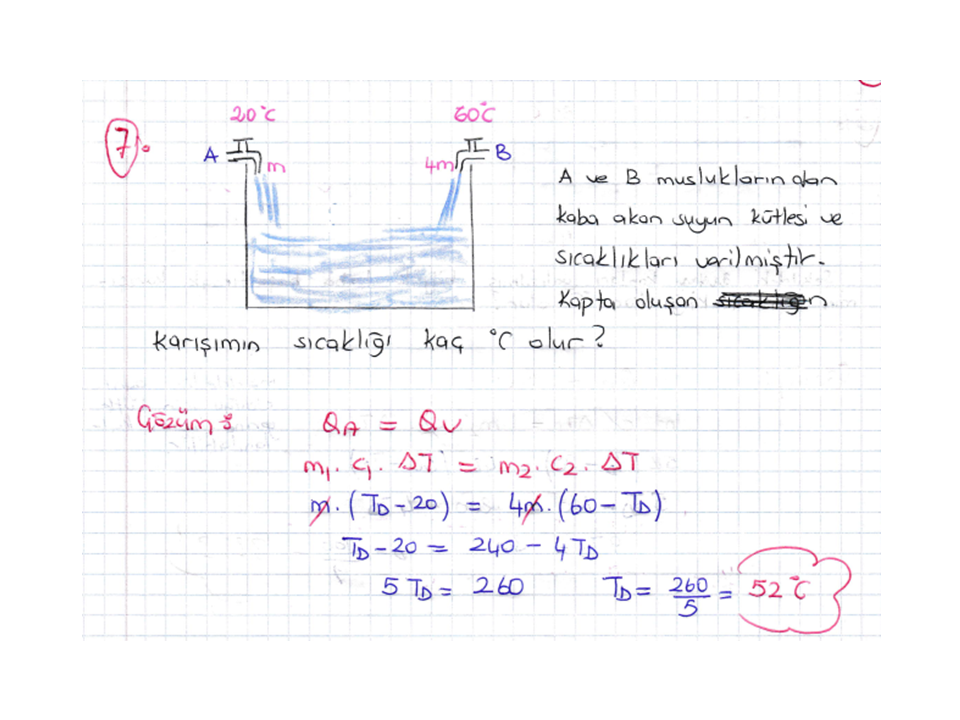 20°C 60°C
7.
A m 4m B
A ve B musluklarından
kaba akan suyun kütlesi ve
sıcaklıkları verilmiştir.
Kapta oluşan
karışımın sıcaklığı kaç °C olur?
Çözüm: QA = QV
m1. c1. ΔT = m2. c2. ΔT
m. (TD - 20) = 4m. (60 - TD)
TD - 20 = 240 - 4TD
5TD = 260 TD = 260/5 = 52°C